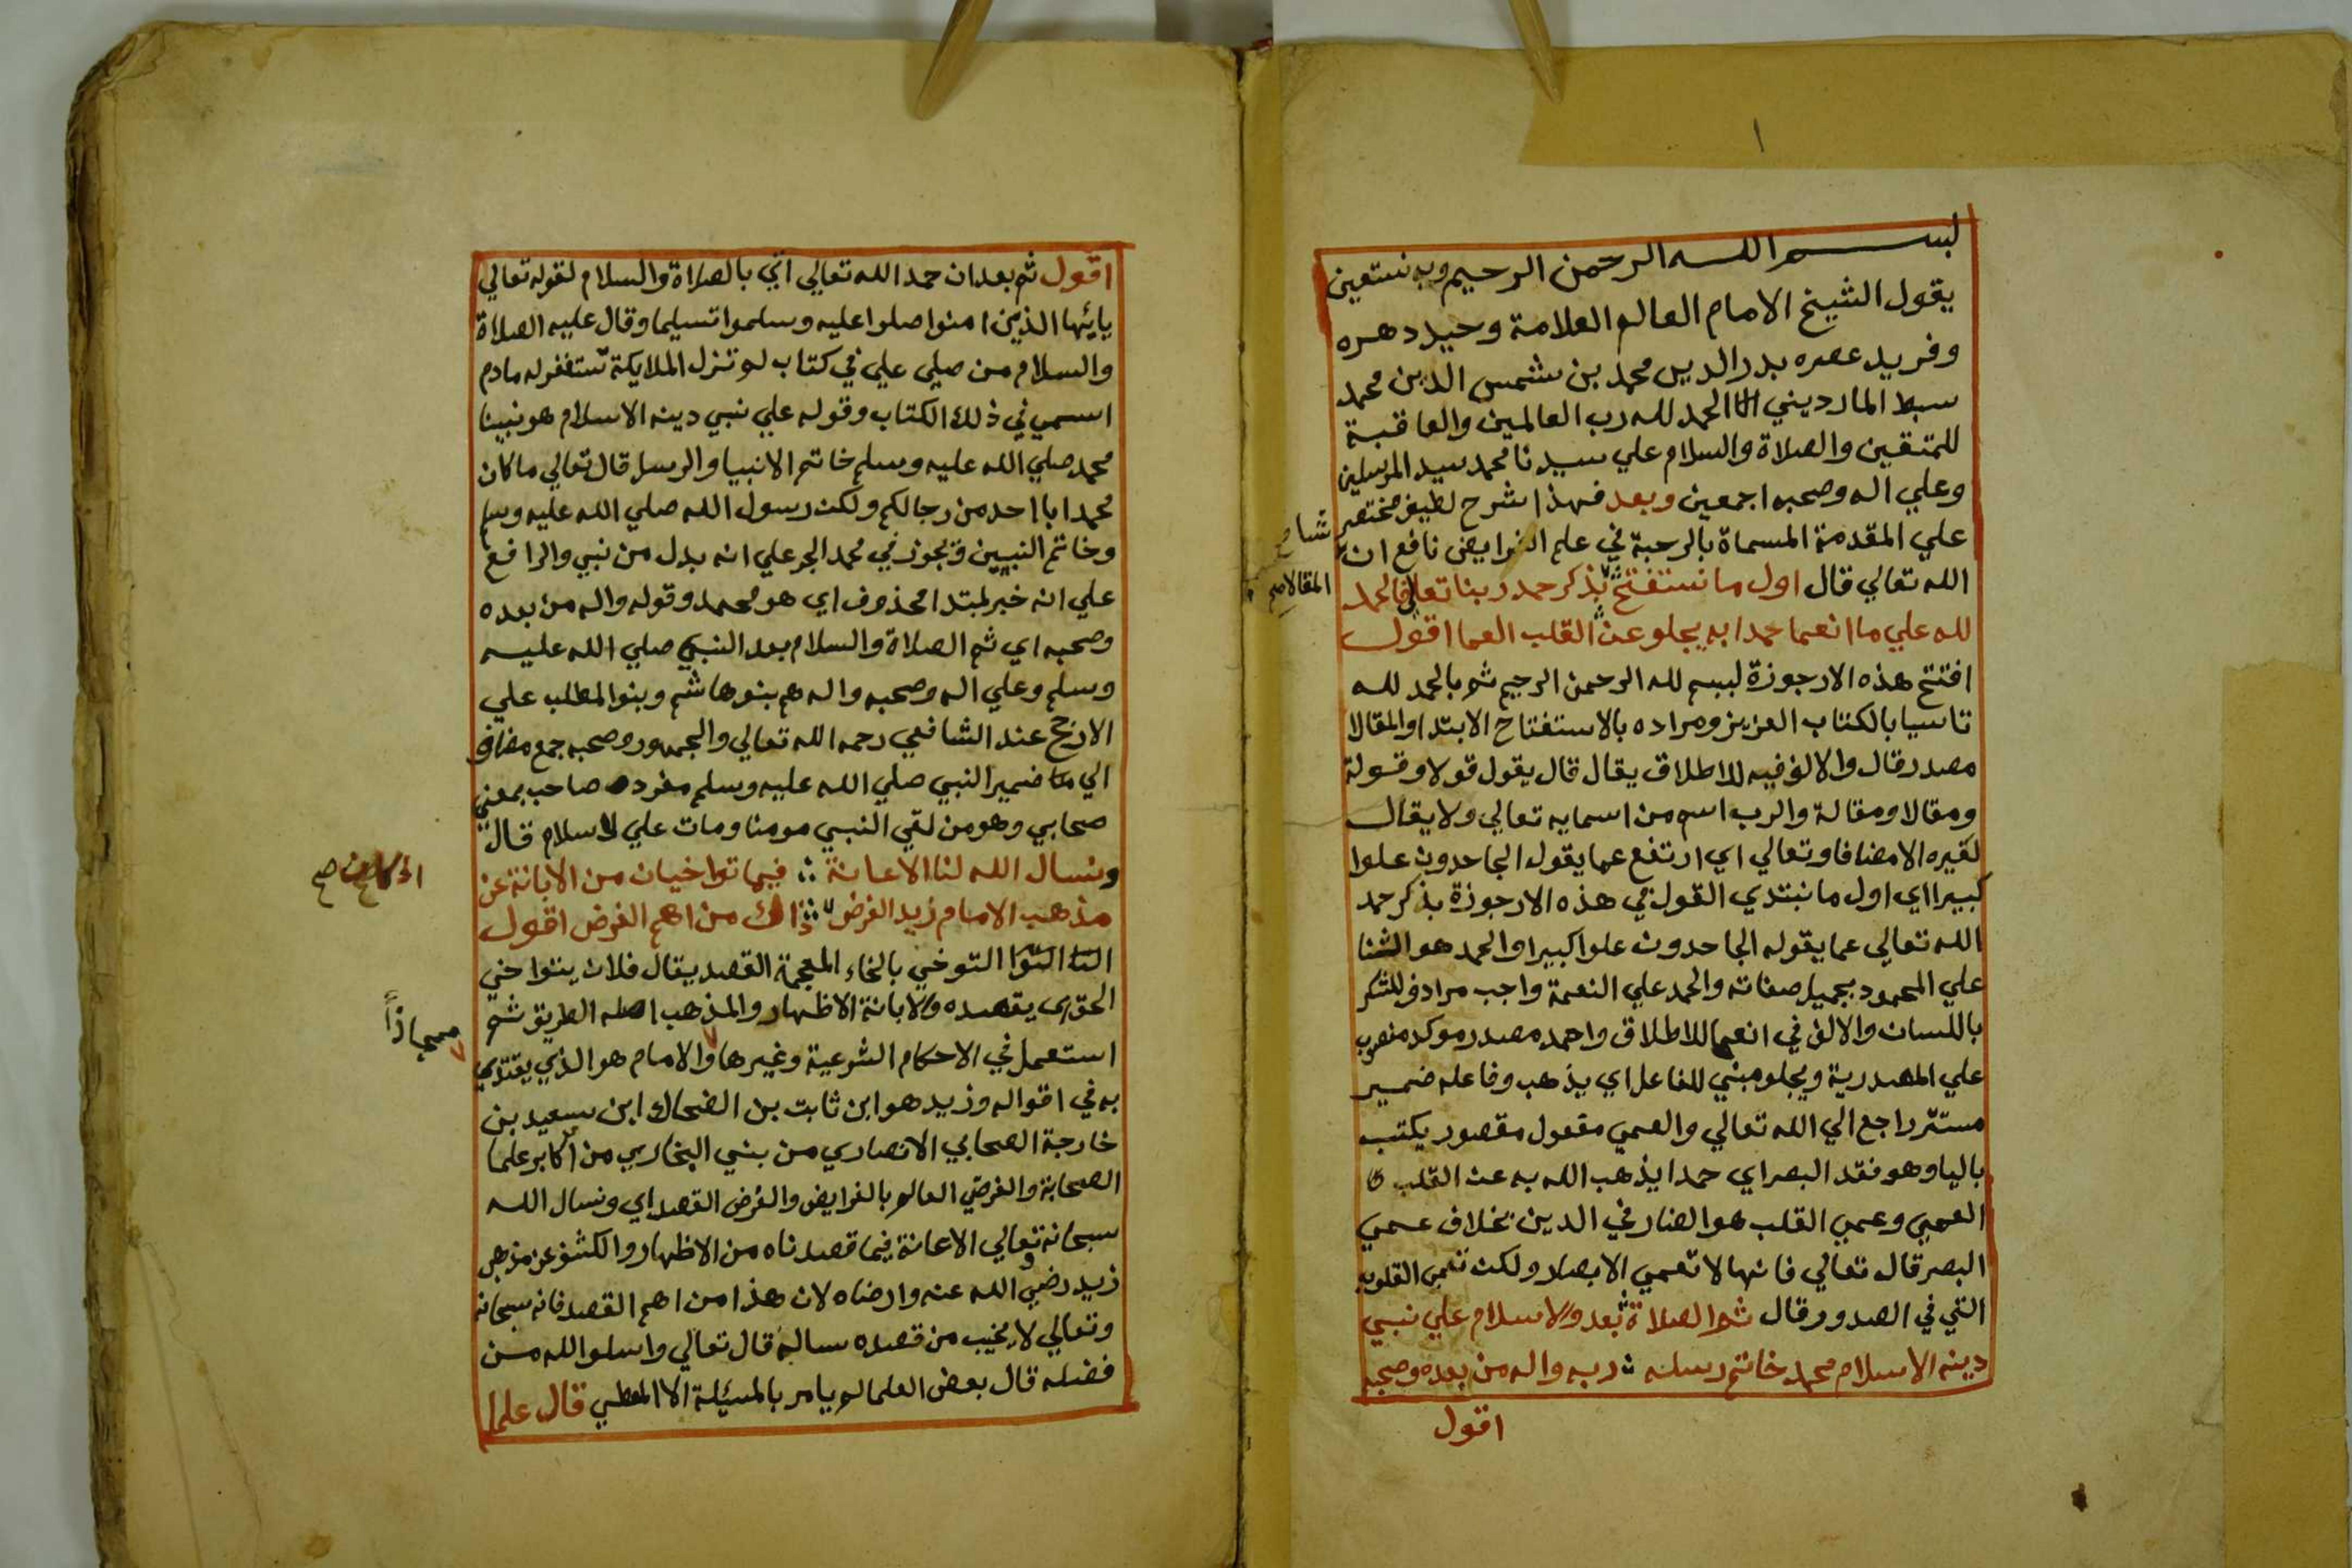 بسم الله الرحمن الرحيم وبه نستعين
يقول الشيخ الامام العالم العلامة وحيد دهره
وفريد عصره بدر الدين محمد بن شمس الدين محمد
سبط المارديني الحمد لله رب العالمين والعاقبة
للمتقين والصلاة والسلام علي سيدنا محمد سيد المرسلين
وعلي اله وصحبه اجمعين وبعد فهذا شرح لطيف مختصر
علي المقدمة المسماة بالرحبة في علم الفرايض نافع ان
شا صح
الله تعالي قال اول ما نستفتح بذكر حمد ربنا تعالي فالحمد
المقالا صح
لله علي ما انعما حمدا به يجلو عن القلب العما اقول
افتتح هذه الارجوزة لبسم لله الرحمن الرحيم ثم بالحمد لله
تاسيا بالكتاب العزيز ومراده بالاستفتاح الابتدا والمقالا
مصدر قال والالف فيه للاطلاق يقال قال يقول قولا وقولة
ومقالا ومقالة والرب اسم من اسمايه تعالي ولا يقال
لغيره الا مضافا وتعالي اي ارتفع عما يقول الجاحدون علوا
كبيرا اي اول ما نبتدي القول في هذه الارجوزة بذكر حمد
الله تعالي عما يقوله الجاحدون علوا كبيرا والحمد هو الثنا
علي المحمود بجميل صفاته والحمد علي النعمة واجب مرادف للشكر
باللسان والالف في انعما للاطلاق واحمد مصدر موكد منصوب
علي المصدرية ويجلو مبني للفاعل اي يذهب وفاعله ضمير
مستتر راجع الي الله تعالي والعمي مفعول مقصور يكتب
باليا وهو فقد البصر اي حمدا يذهب الله به عن القلب
العمي وعمي القلب هو الضار في الدين بخلاف عمي
البصر قال تعالي فانها لا تعمي الابصار ولكن تعمي القلوب
التي في الصدور قال ثم الصلاة بعد والاسلام علي نبي
دينه الاسلام محمد خاتم رسله ربه واله من بعده وصحبه
اقول
اقول ثم بعد ان حمد الله تعالي اتي بالصلاة والسلام لقوله تعالي
يايها الذين امنوا صلوا عليه وسلموا تسليما وقال عليه الصلاة
والسلام من صلي علي في كتاب لم تزل الملايكة تستغفر له مادم
اسمي في ذلك الكتاب وقوله علي نبي دينه الاسلام هو نبينا
محمد صلي الله عليه وسلم خاتم الانبيا والرسل قال تعالي ما كان
محمد ابا احد من رجالكم ولكن رسول الله صلي الله عليه وسلم
وخاتم النبيين ويجوز في محمد الجر علي انه بدل من نبي والرافع
علي انه خبر لمبتدا محذوف اي هو محمد وقوله واله من بعده
وصحبه اي ثم الصلاة والسلام بعد النبي صلي الله عليه
وسلم وعلي اله وصحبه واله هم بنو هاشم وبنوا المطلب علي
الارجح عند الشافعي رحمه الله تعالي والجمهور وصحبه جمع مضاف
الي ضمير النبي صلي الله عليه وسلم مفرده صاحب بمعني
صحابي وهو من لقي النبي مومنا ومات علي الاسلام قال
ونسال الله لنا الاعانة فيما تواخيان من الابانة عن
مذهب الامام زيد الفرض ذاك من اهم الغرض اقول
التوخي بالخاء المعجمة القصد يقال فلان يتواخي
الحق اي يقصده والابانة الاظهار والمذهب اصله الطريق ثم
مجازاً
استعمل في الاحكام الشرعية وغيرها والامام هو الذي يقتدي
به في اقواله وزيد هو ابن ثابت بن الضحاك ابن سعيد بن
خارجة الصحابي الانصاري من بني البخاري من اكابر علما
الصحابة والفرضي العالم بالفرايض والغرض القصد اي ونسال الله
سبحانه وتعالي الاعانة فيما قصدناه من الاظهار والكشف عن مذهب
زيد رضي الله عنه وارضاه لان هذا من اهم القصد فانه سبحانه
وتعالي لا يخيب من قصده ساله قال تعالي واسلوا الله من
فضله قال بعض العلما لم يامر بالمسئلة الا المعطي قال علما